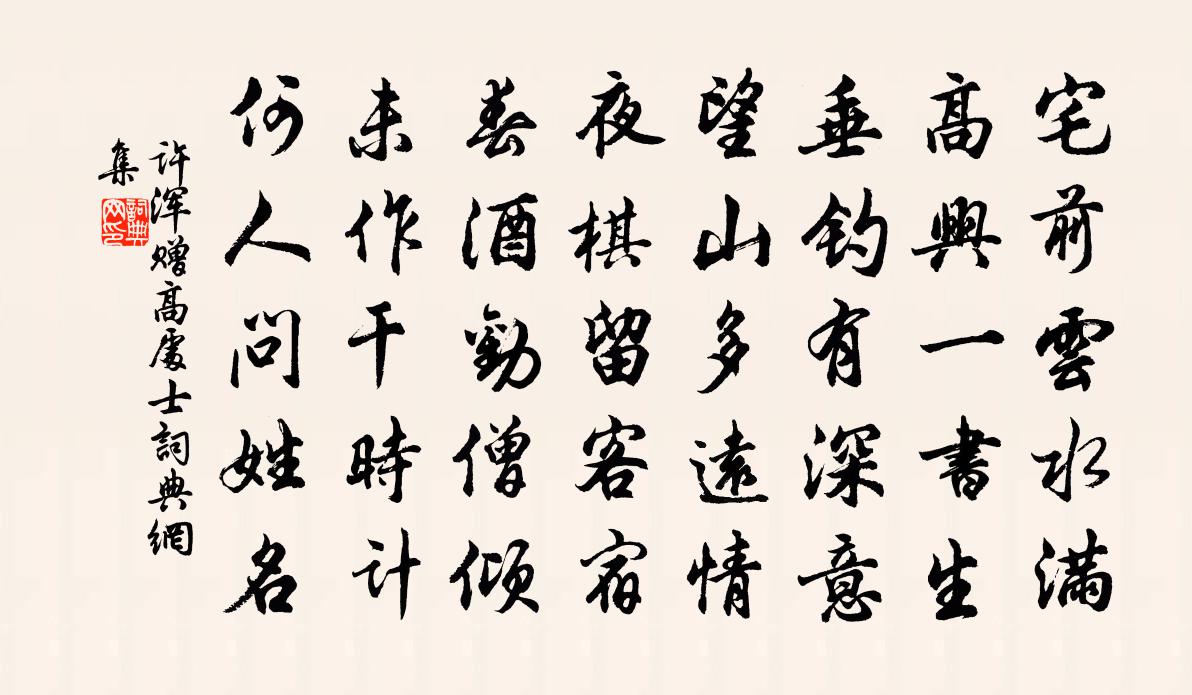 宅前雲水滿
高興一書生
垂釣有深意
望山多遠情
夜棋留客宿
春酒勸僧傾
未作干時計
何人問姓名
许浑赠高處士詞典網
集
詞典
网印